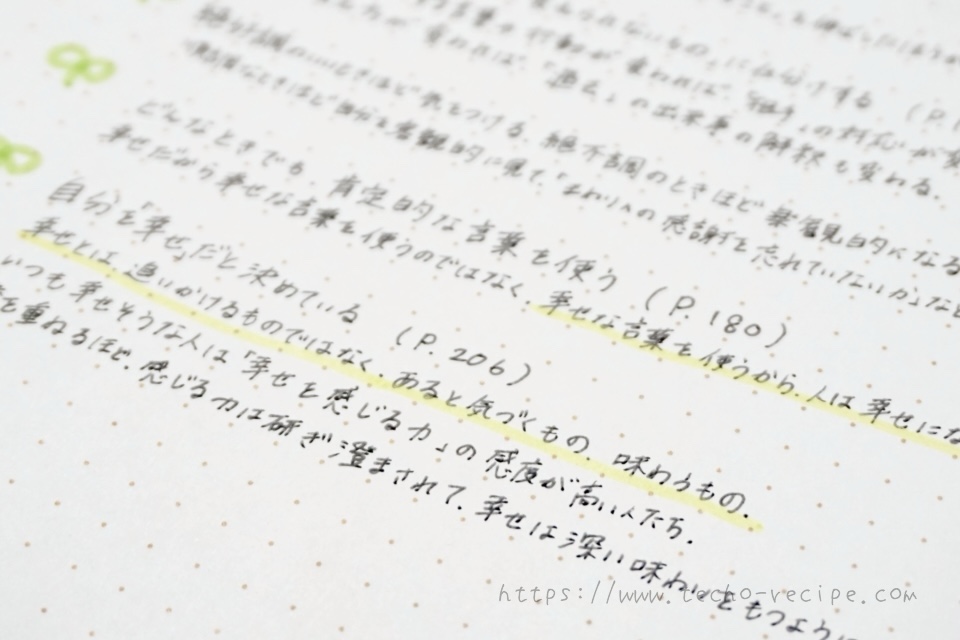 変えられないもの」に仕分けする (P.1
言葉や行動が変われば、「相手」の対応が変
が変われば、「過去」の出来事の解釈も変わる。
絶好調のいいときほど気をつける。絶不調のときほど楽観的になる
順調なときほど自分を客観的に見て、「まわりへの感謝を忘れていないか」など
どんなときでも、肯定的な言葉を使う (P.180)
幸せだから幸せな言葉を使うのではなく、幸せな言葉を使うから、人は幸せにな
自分を「幸せ」だと決めている (P.206)
幸せとは、追いかけるものではなく、あると気づくもの、味わうもの。
いつも幸せそうな人は「幸せを感じる力」の感度が高い人たち。
を重ねるほど、感じる力は研ぎ澄まされて、幸せは深い味わいをもつように
https://www.techo-recipe.com